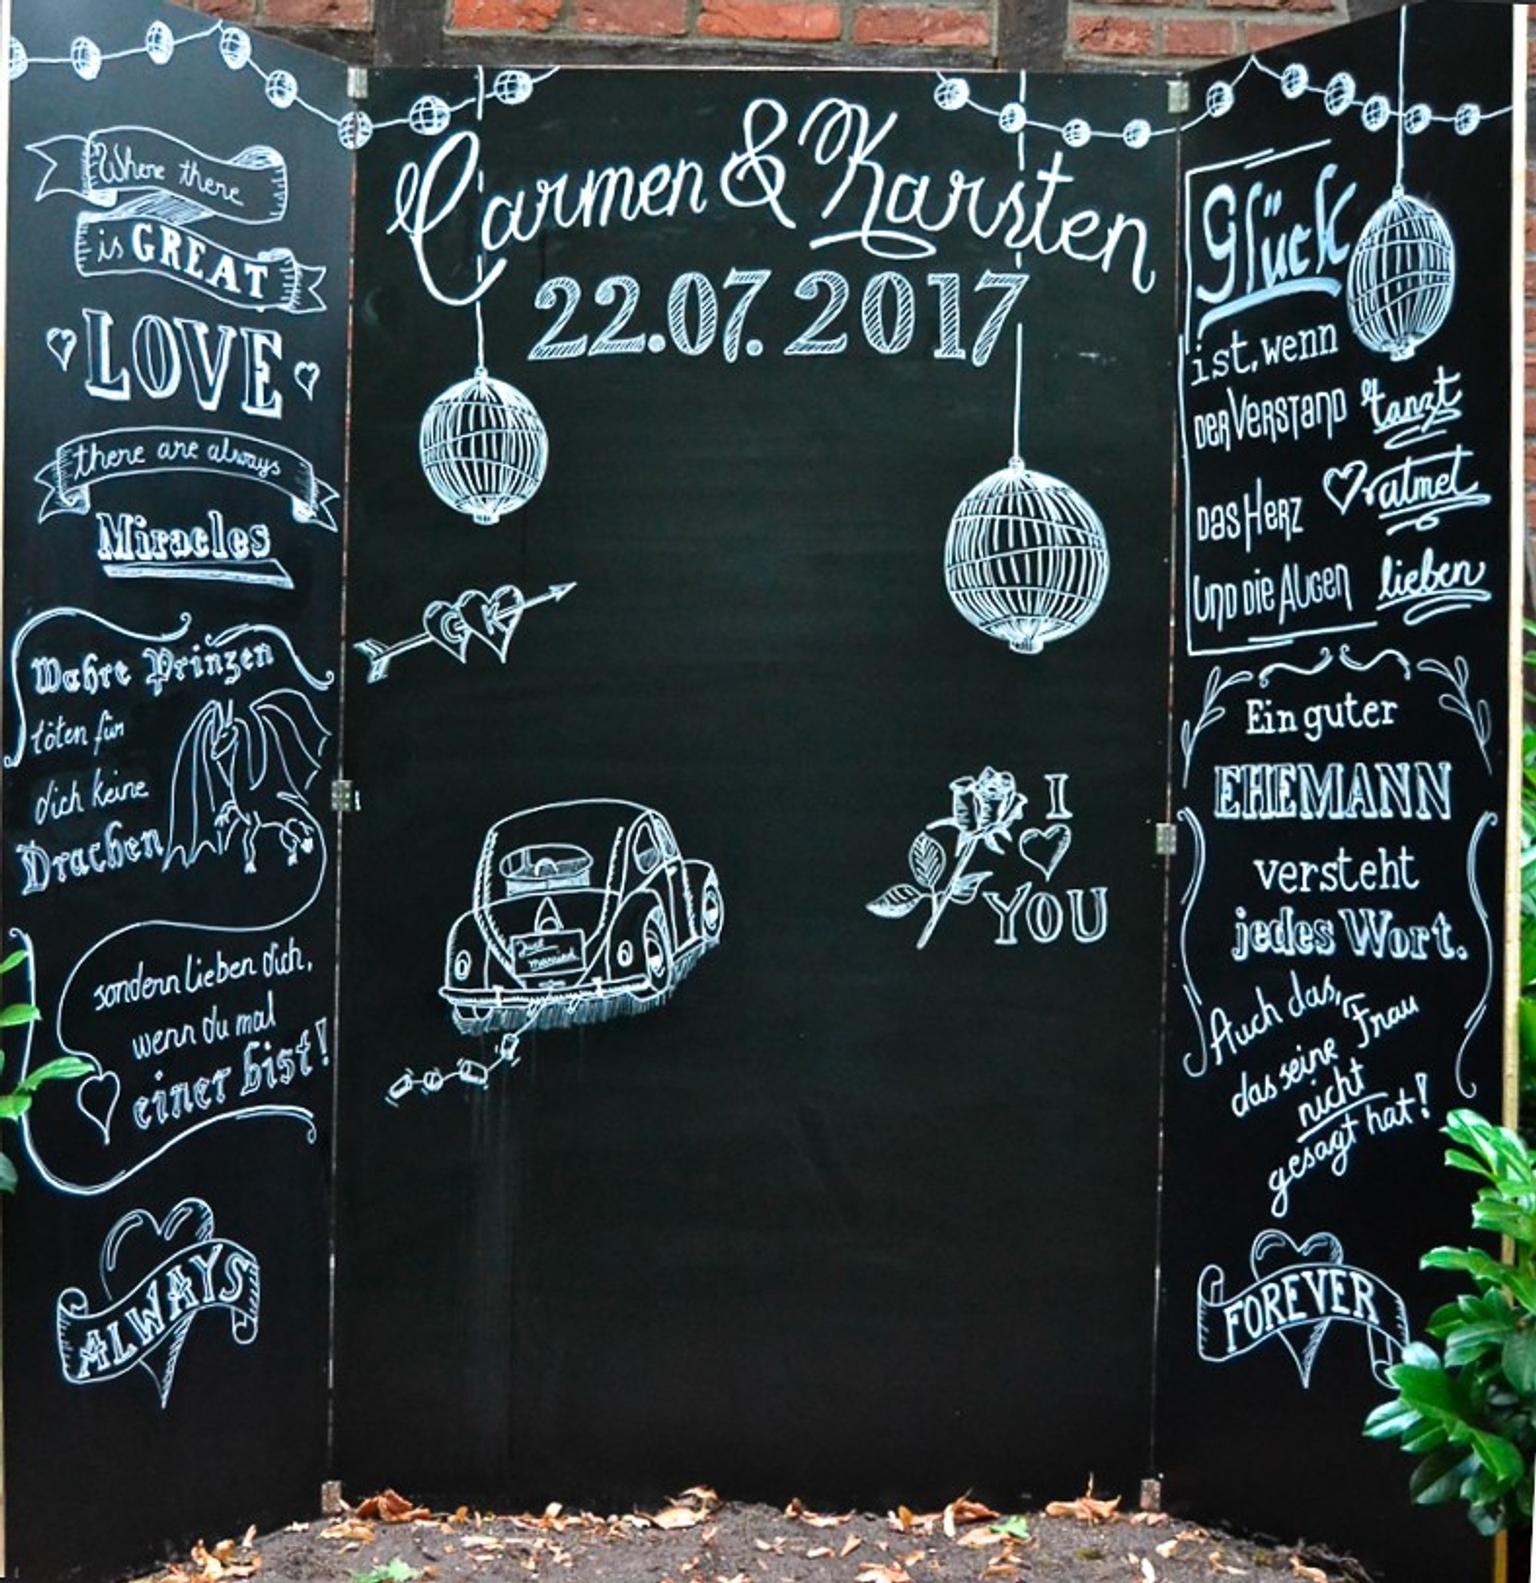 Where there
is GREAT
LOVE
there are always
Miracles
Wahre Prinzen
töten für
dich keine
Drachen
sondern lieben dich,
wenn du mal
einer bist!
ALWAYS
Carmen & Karsten
22.07.2017
C K
Just
married
I
YOU
Glück
ist, wenn
DER VERSTAND tanzt
DAS HERZ atmet
UND DIE AUGEN lieben
Ein guter
EHEMANN
versteht
jedes Wort.
Auch das,
das seine Frau
nicht
gesagt hat!
FOREVER